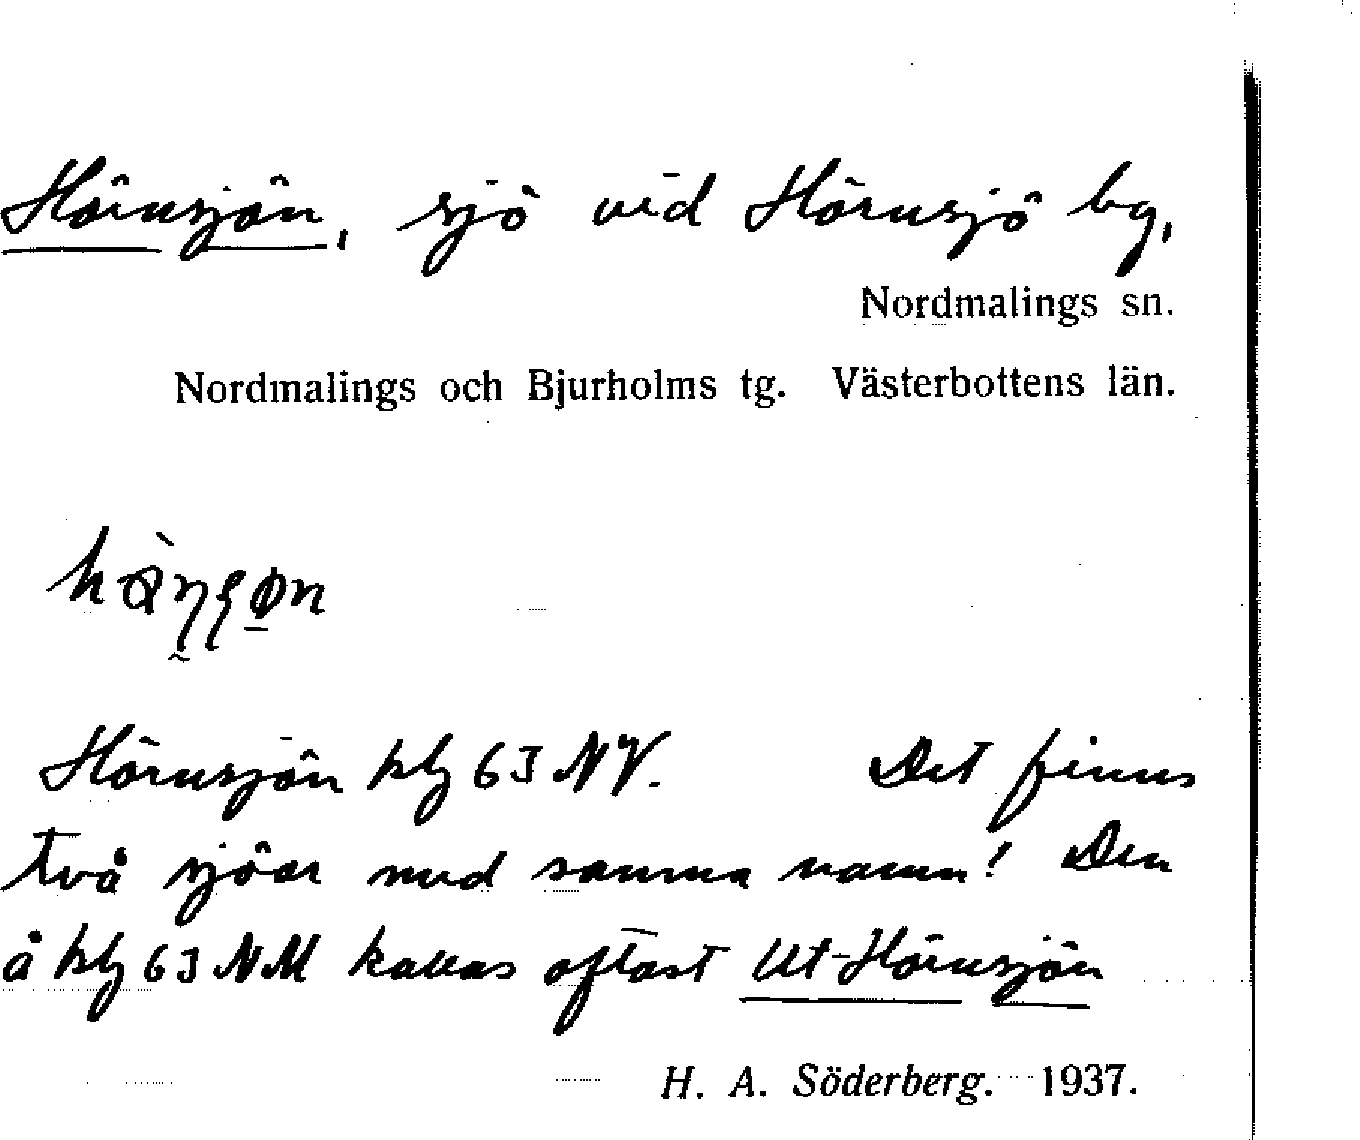 Hörnsjön, sjö vid Hörnsjö by,
Nordmalings sn.
Nordmalings och Bjurholms tg. Västerbottens län.
Hörnsjön kbl 63 J NV. Det finns
två sjöar med samma namn! Den
å kbl 63 J NM kallas oftast Ut-Hörnsjön
H. A. Söderberg. 1937.